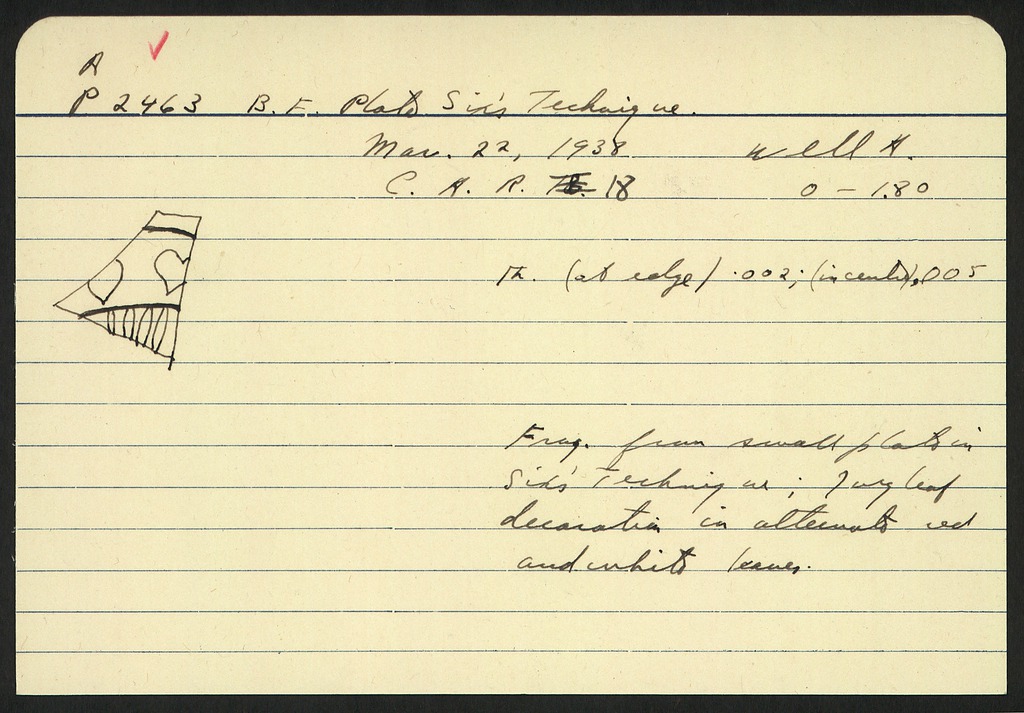 A
P 2463 B.F. Plate Six's Technique.
Mar. 22, 1938 Well A.
C. A. R. 18 0 - 1.80
Th. (at edge) .002; (in center), .005
Frag. from small plate in
Six's Technique; Ivy leaf
decoration in alternate red
and white leaves.